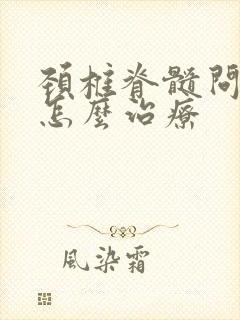 頚椎脊髓問
怎麼治療
風染霜